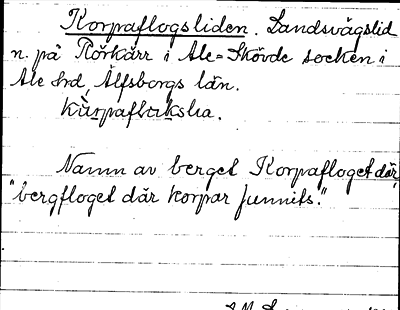 Korpaflogsliden. Landsvägslid
n. på Rörkärr i Ale=Skövde socken i
Ale hrd, Älfsborgs län.
Namn av berget Korpafloget där,
"bergfloget där korpar funnits."